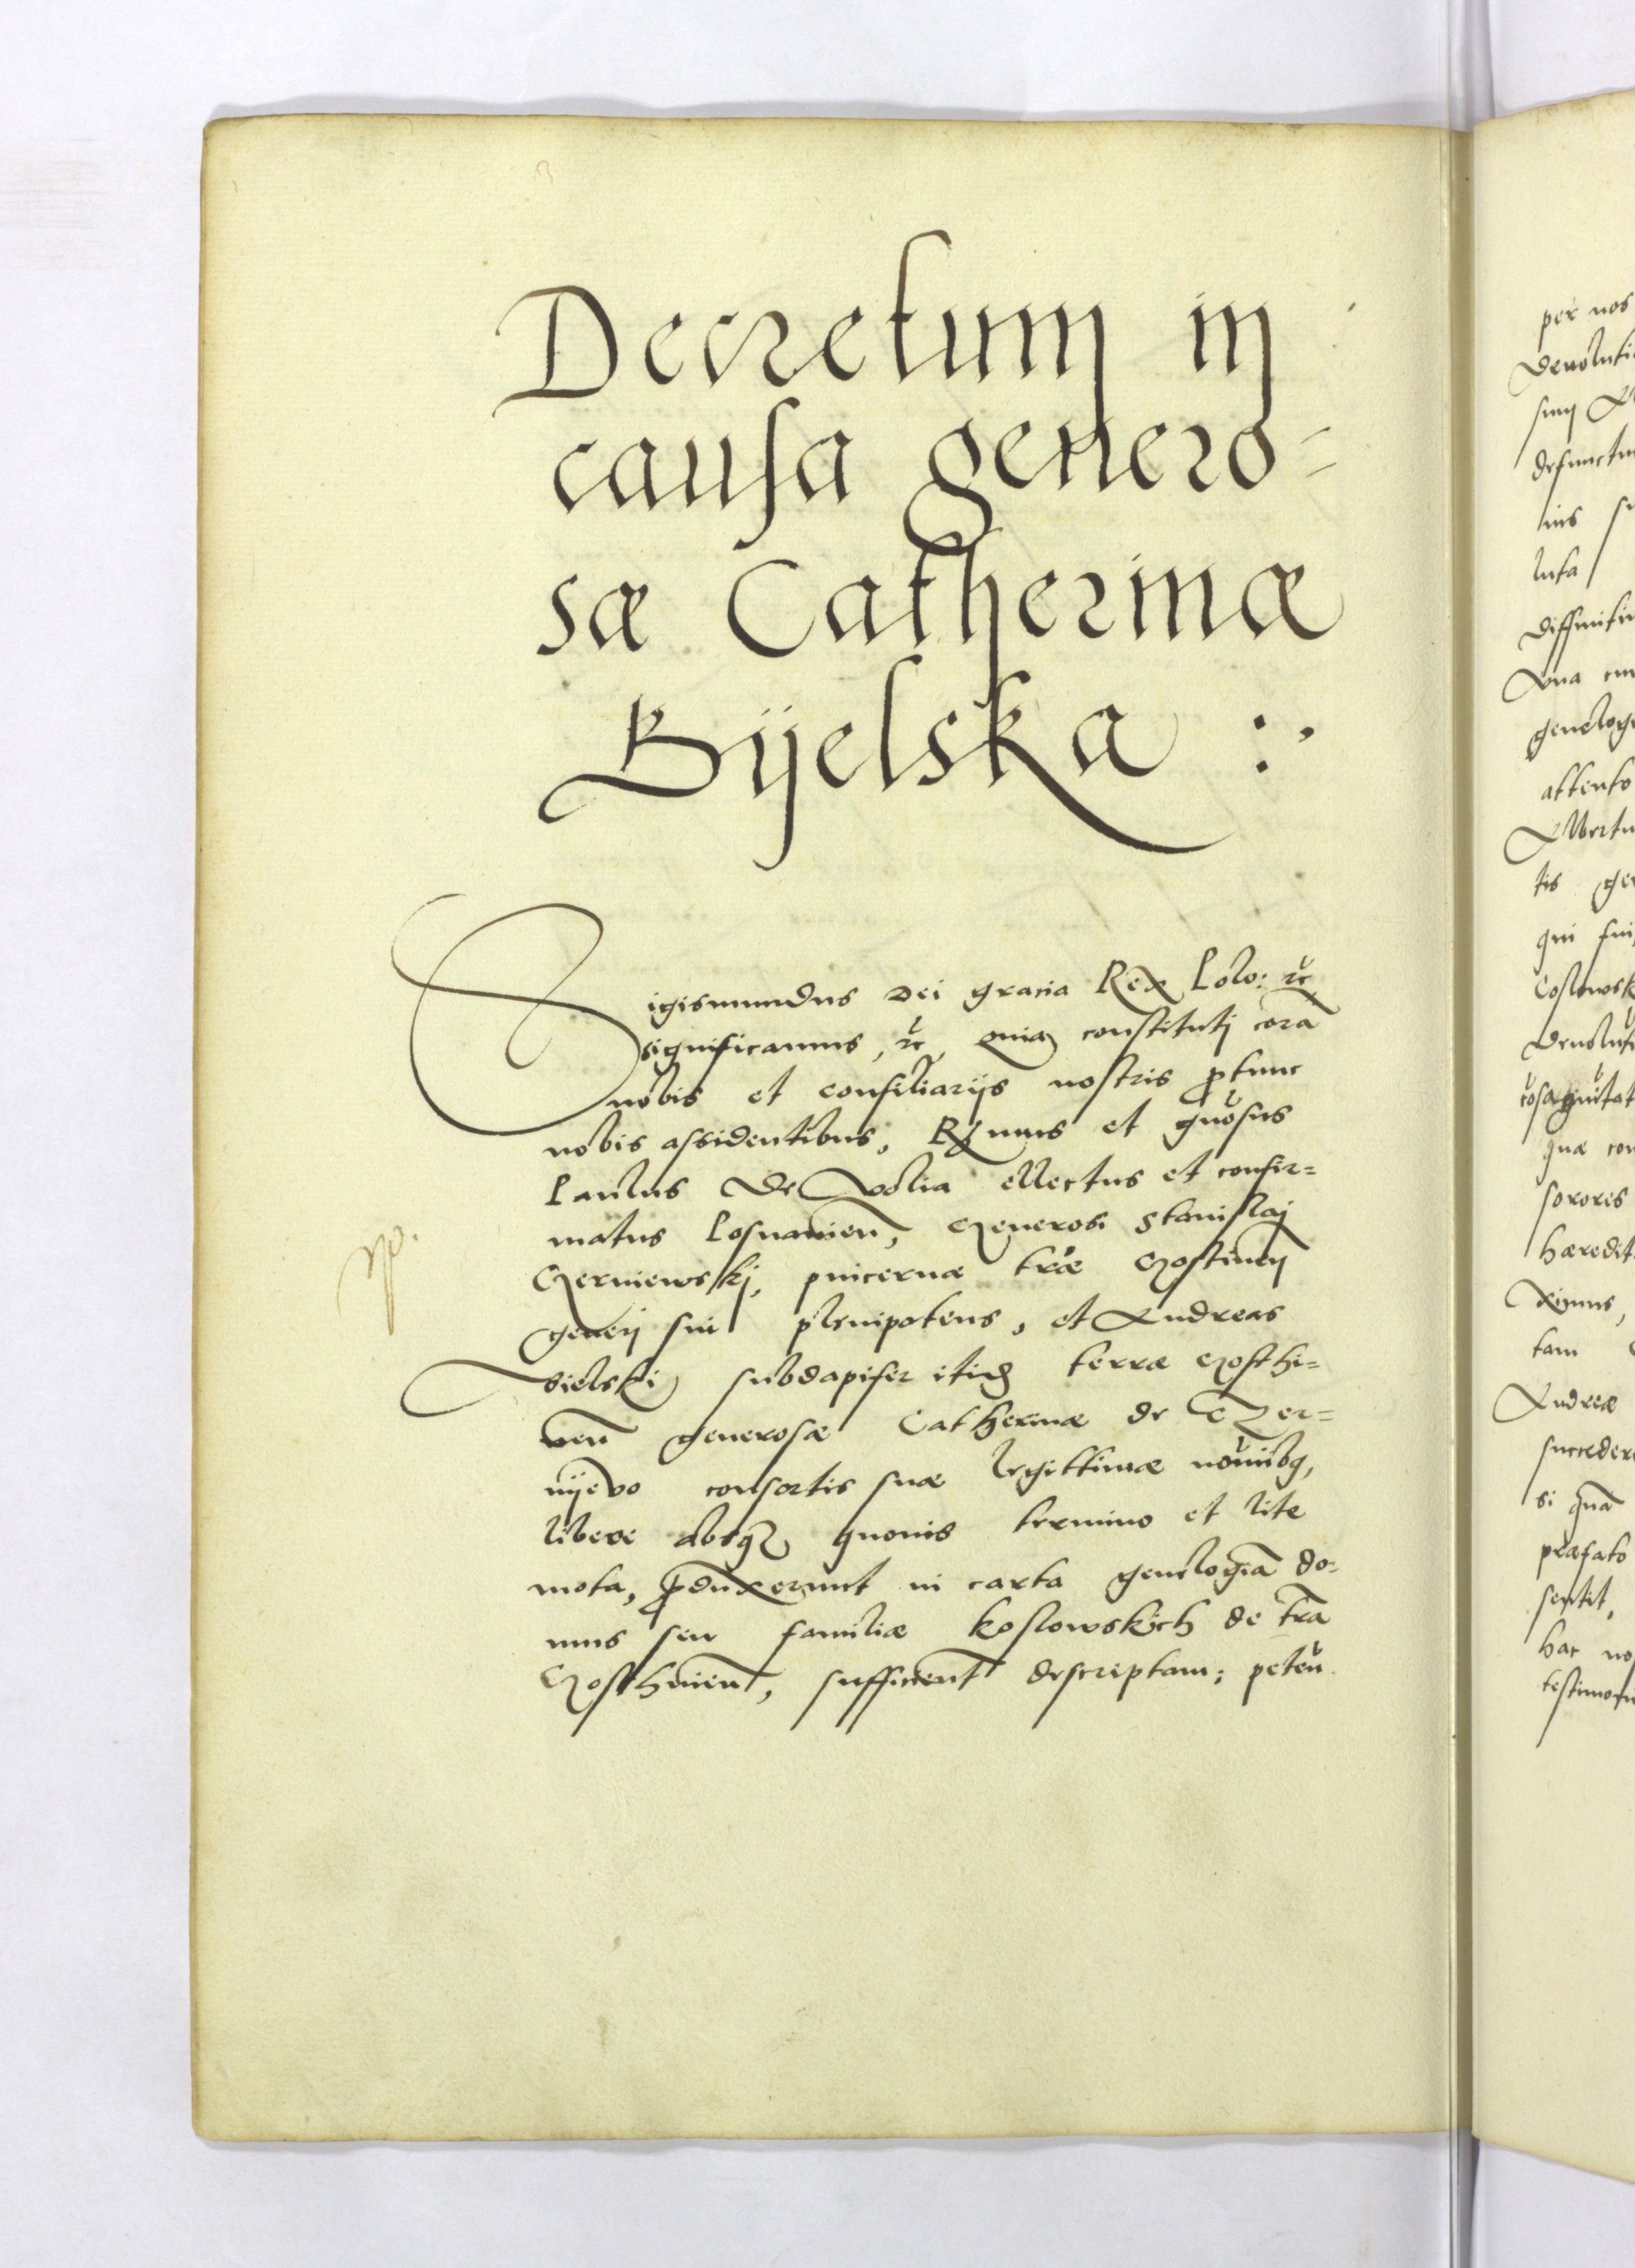 Decretum in
causa genero=
sæ Catherinæ
Bijelska :
Sigismundus Dei gracia Rex Polo: etc
significamus, etc quia constituti corã
nobis et consiliarijs nostris ꝓtunc
nobis assidentibus, Rndus et gnõsus
Paulus de Volia ellectus et confir=
matus Posnanien̄, Generosi Stanislaj
Czerniewskj, pincernæ træ Gostinen̄
generj sui plenipotens, et Andreas
Bielski subdapifer itid terræ Gosthi=
nen̄ generosæ Catherinæ de Czer=
nijevo consortis suæ legittimæ noĩbq,
libere absqȝ quovis termino et lite
mota, ꝓduxerunt in carta genelogiã do=
mus seu familiæ Koslowskich de trã
Gosthinen̄, sufficient̄ descriptam; peteñ
per nos
devoluti
suũ
defunctu
ius
luta
diffiniti
Una cu
genelogi
attento
Albertu
tis ge
qui fui
Coslowsk
devolut
cõsaguĩtat
quæ con
sorores
hæredit
ximus,
tam
Andreæ
succeder
si quã
præfato
sentit,
hac no
testimon